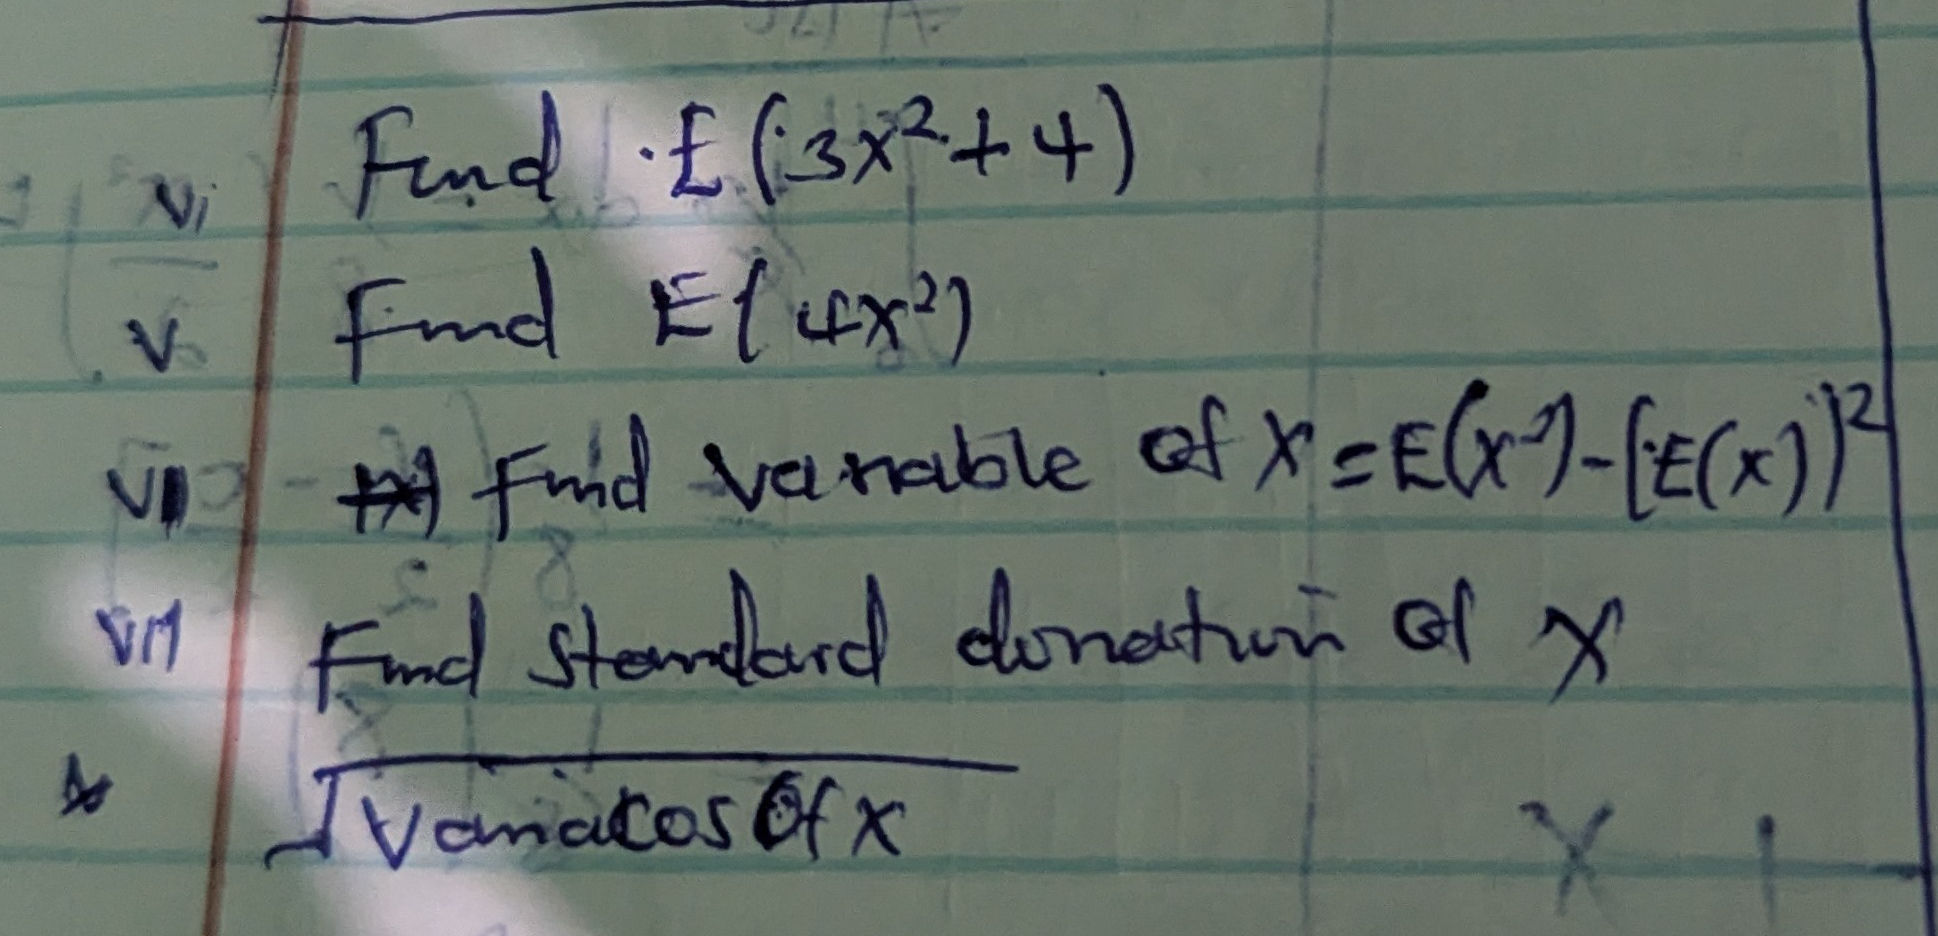 vi Find E(3x²+4)
v Find E(4x²)
vii Find variable of X = E(x²) - [E(x)]²
viii Find standard donation of X
√Variacos Of x